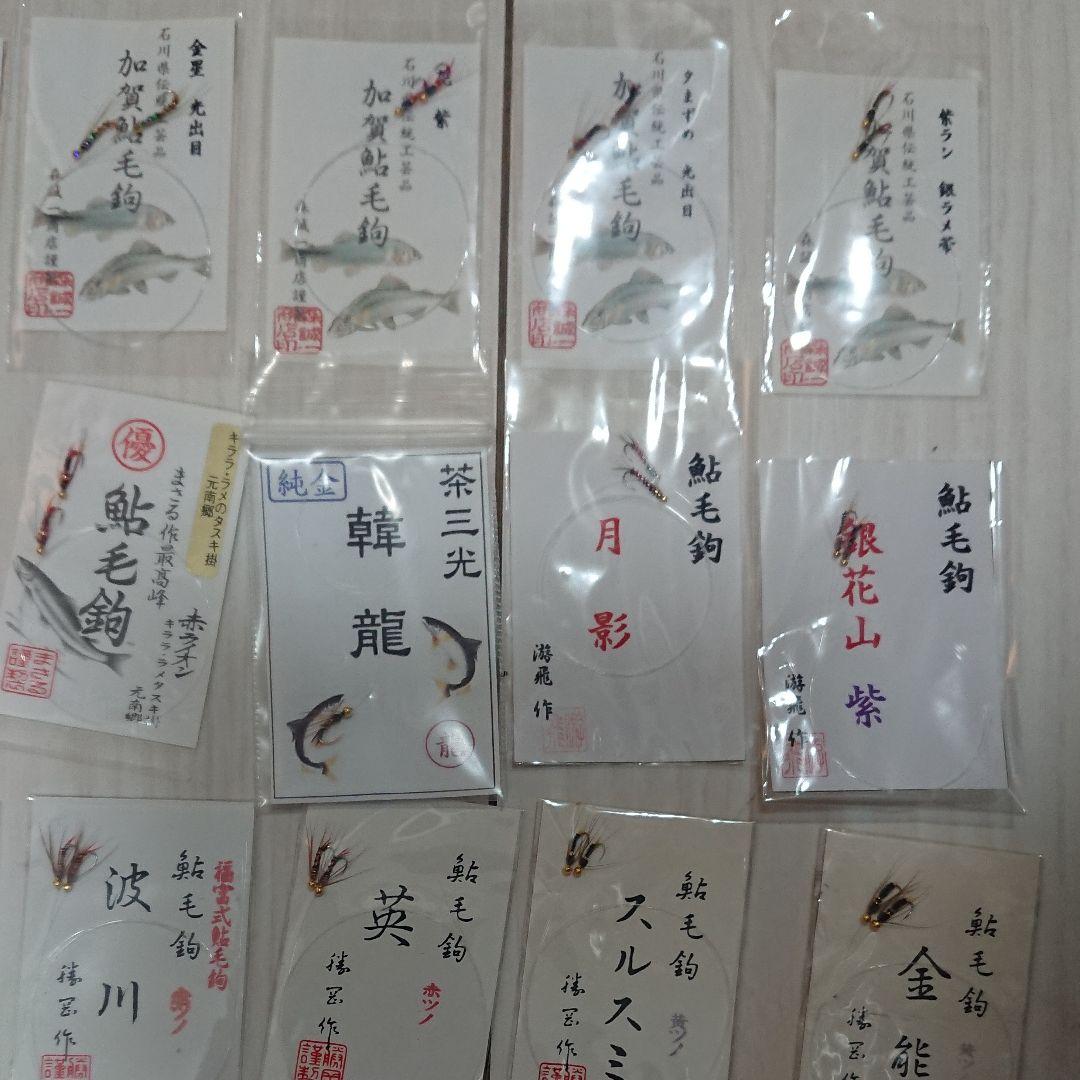 金星 光出目
石川県伝統工芸品
加賀鮎毛鉤
紫
石川県伝統工芸品
加賀鮎毛鉤
夕まずめ 光出目
石川県伝統工芸品
加賀鮎毛鉤
紫ラン 銀ラメ帯
石川県伝統工芸品
加賀鮎毛鉤
キララ・ラメのタスキ掛
元南郷
優
まさる作最高峰
鮎毛鉤
赤ライオン
キララ・ラメタスキ掛
元南郷
まさる
純金
茶三光
韓龍
龍
鮎毛鉤
月影
游飛作
鮎毛鉤
銀花山 紫
游飛作
福富式鮎毛鉤
鮎毛鉤
波川
勝岡作
鮎毛鉤
英
赤ツノ
勝岡作
謹製
鮎毛鉤
スルスミ
黄ツノ
勝岡作
鮎毛鉤
金能
勝岡作